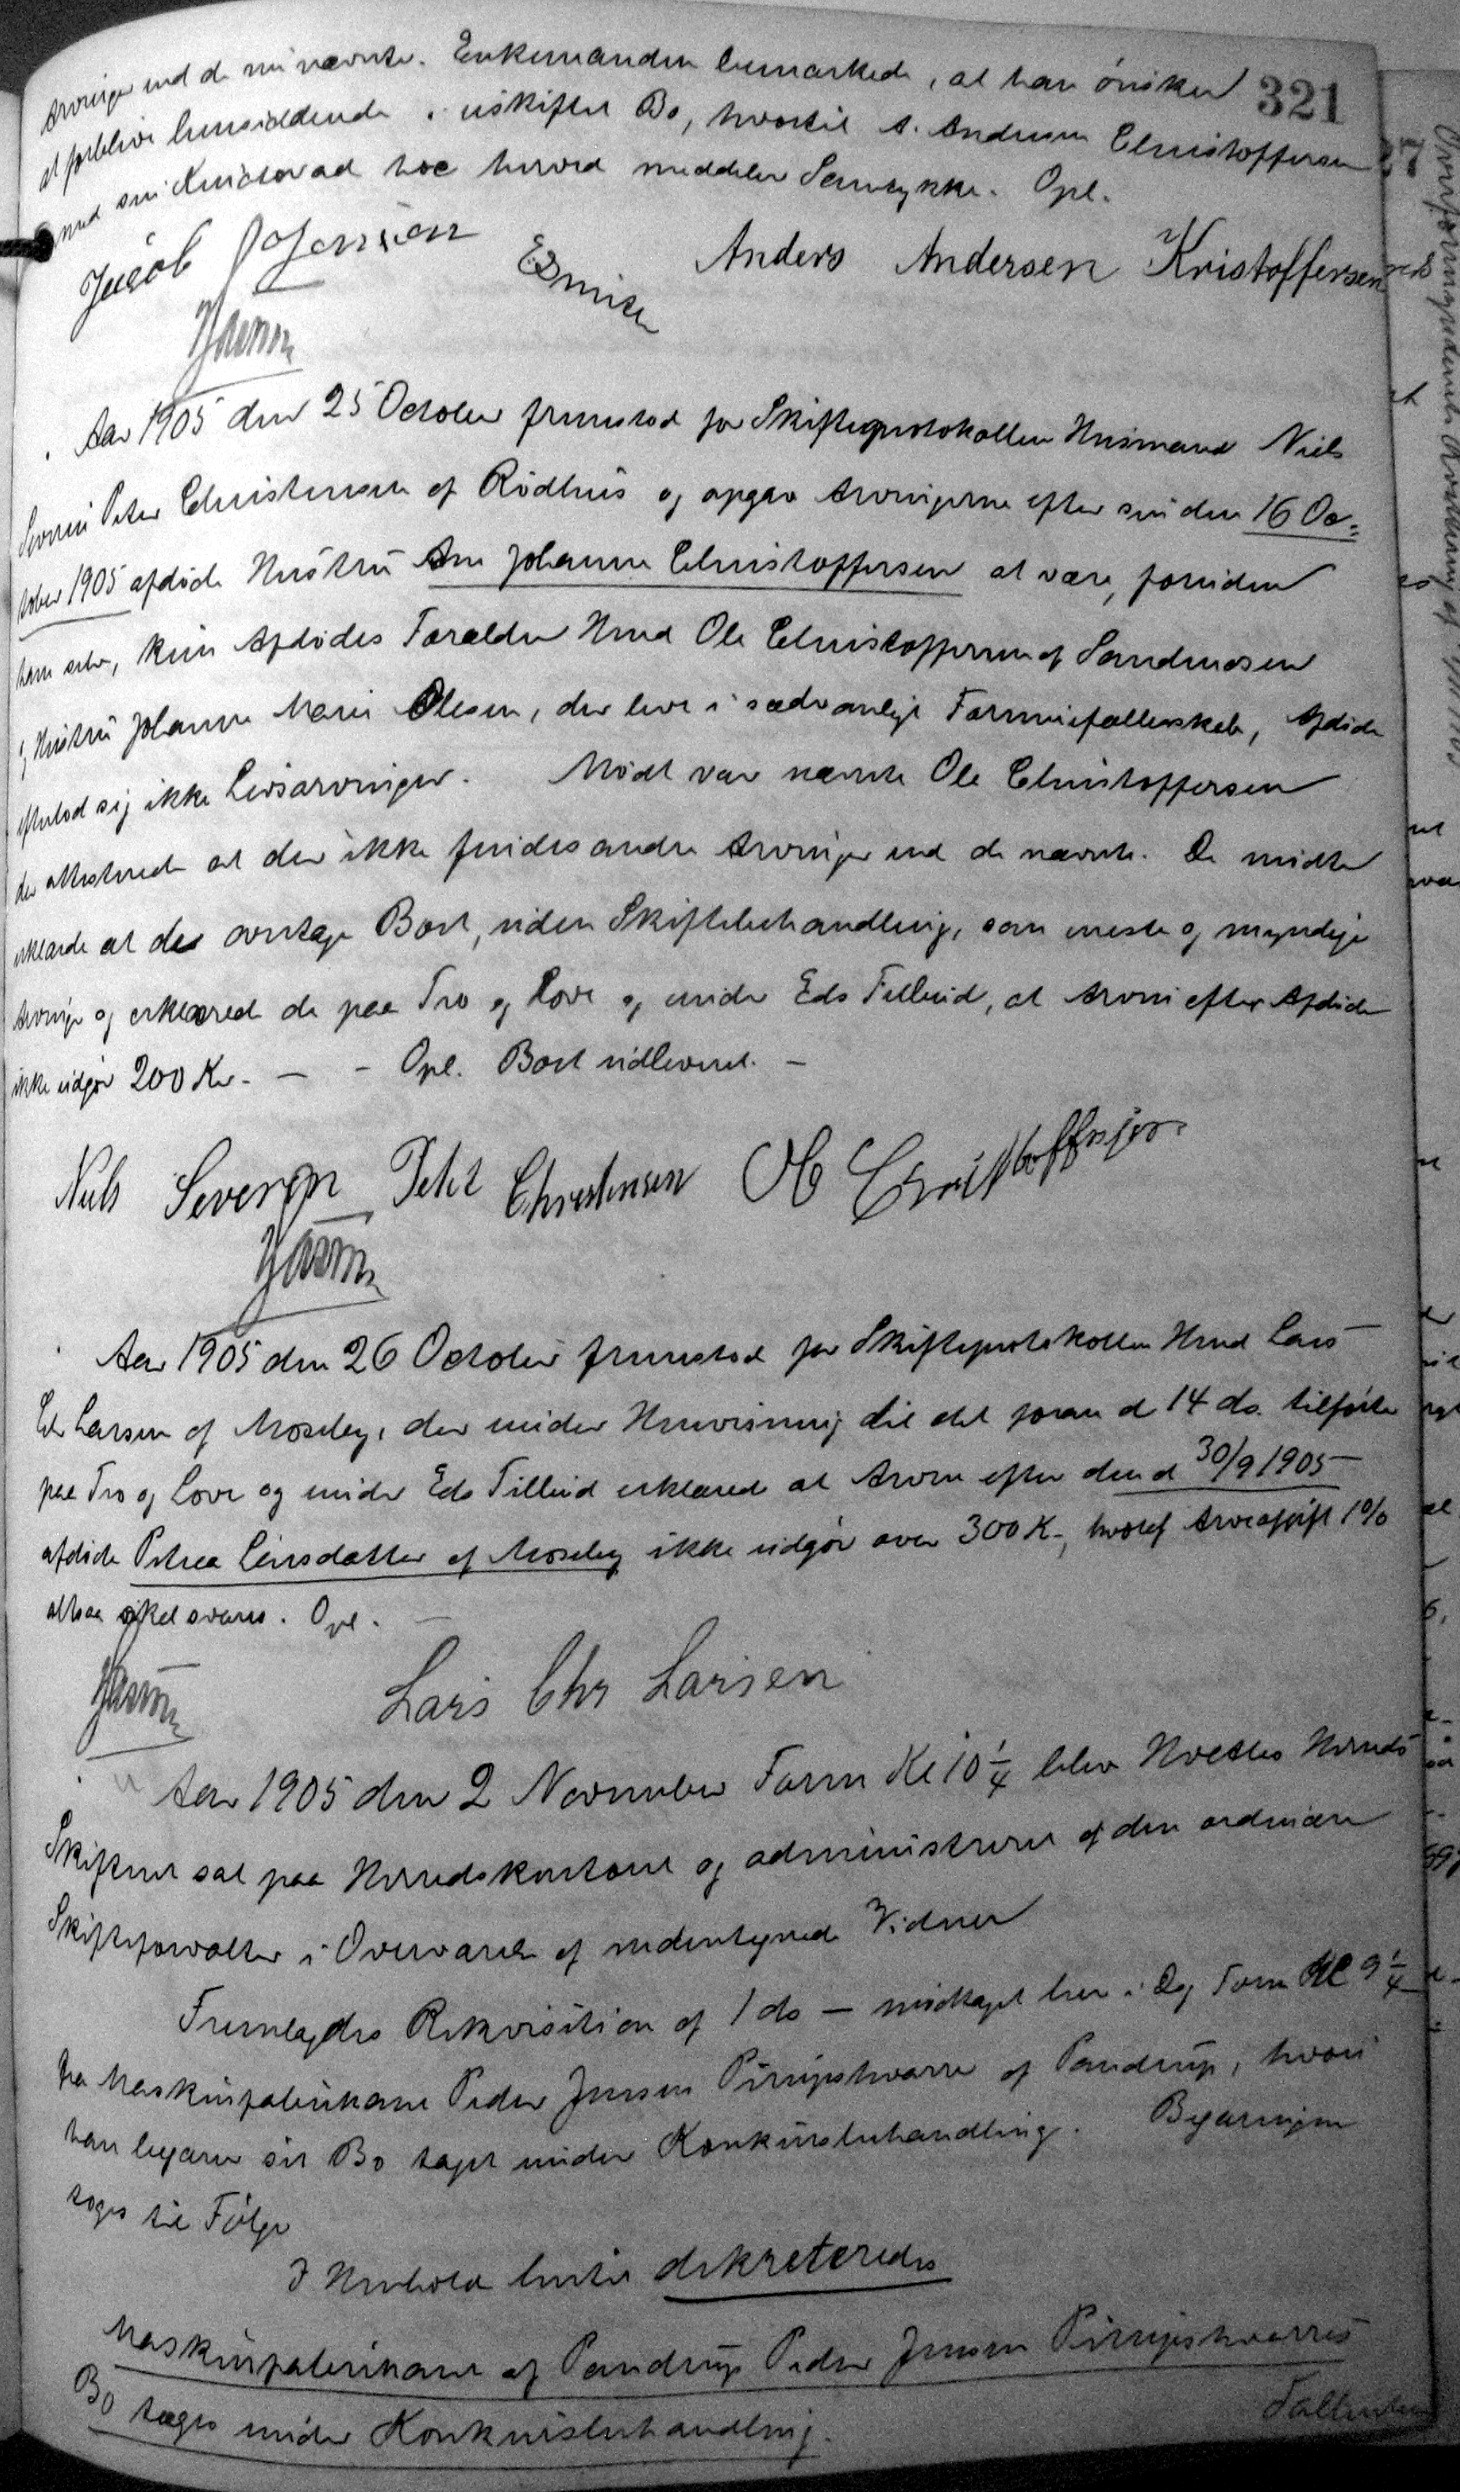 321
Arvinger end de nu nævnte. Enkemanden bemærkede, at han ønsker
at forblive hensiddende i uskiftet Bo, hvortil A. Andersen Christoffersen
med sin Underskrift her herved meddeler Samtykke. Opl.
Jacob Jensen Anders Andersen Kristoffersen
Aar 1905 den 25 October fremstod for Skifteprotokollen Husmand Niels
Severin Peter Christensen af Rødhus og opgav Arvingerne efter sin den 16 Oc=
tober 1905 afdøde Hustru Ane Johanne Christoffersen at være, foruden
ham selv, kun Afdødes Forældre Hmd Ole Christoffersen af Sandmosen
og Hustru Johanne Marie Olesen, der leve i sædvanligt Formuefællesskab, Afdøde
efterlod sig ikke Livsarvinger. Mødt var nævnte Ole Christoffersen
der attesterede at der ikke findes andre Arvinger end de nævnte. De mødte
erklærede at de overtage Boet, uden Skiftebehandling, som eneste og myndige
Arvinger og erklærede de paa Tro og Love og under Eds Tilbud, at Arven efter Afdøde
ikke udgør 200 Kr. — - Opl. Boet udleveret. —
Niels Severin Peter Christensen Ole Christoffersen
Aar 1905 den 26 October fremstod for Skifteprotokollen Hmd Lars
Chr Larsen af Moseby, der under Henvisning til det foran d 14 ds. tilførte
paa Tro og Love og under Eds Tilbud erklærede at Arven efter den d 30/9 1905
afdøde Petrea Larsdatter af Moseby ikke udgør over 300 K-, hvoraf Arveafgift 1%
altsaa svares. Opl. —
Lars Chr Larsen
Aar 1905 den 2 November Form Kl 10 1/4 blev Hvetbo Herreds
Skifteret sat paa Herredskontoret og administreret af den ordinære
Skifteforvalter i Overværelse af undertegnede Vidner
Fremlagdes Rekvisition af 1 ds — modtaget her i Dag Form Kl 9 1/4
fra Maskinfabrikant Peder Jensen Pirupshvarre af Pandrup, hvori
han begærer sit Bo taget under Konkursbehandling. Begæringen
toges til Følge
I Henhold hertil dekreteredes
Maskinfabrikant af Pandrup Peder Jensen Pirupshvarres
Bo tages under Konkursbehandling.